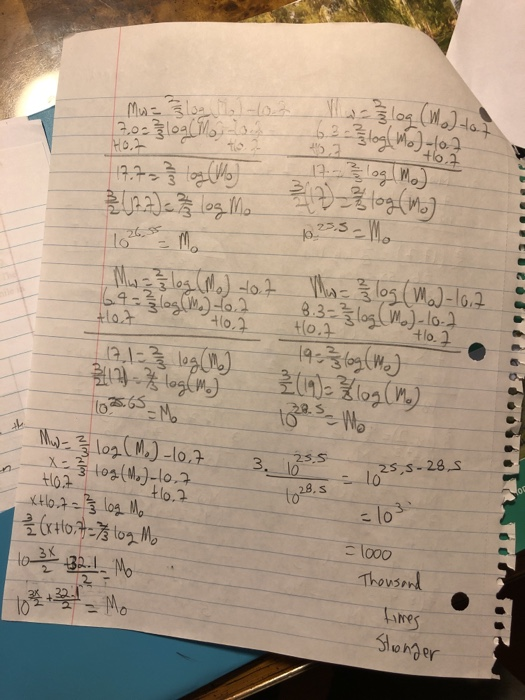 Mw = 2/3 log(M₀) - 10.7
7.0 = 2/3 log(M₀) - 10.7
+10.7 +10.7
17.7 = 2/3 log(M₀)
3/2 (17.7) = 2/3 log M₀
10^26.55 = M₀
Mw = 2/3 log(M₀) - 10.7
6.3 = 2/3 log(M₀) - 10.7
+10.7 +10.7
17 = 2/3 log(M₀)
3/2 (17) = 2/3 log(M₀)
10^25.5 = M₀
Mw = 2/3 log(M₀) - 10.7
6.4 = 2/3 log(M₀) - 10.7
+10.7 +10.7
17.1 = 2/3 log(M₀)
3/2 (17) = 2/3 log(M₀)
10^25.65 = M₀
Mw = 2/3 log(M₀) - 10.7
8.3 = 2/3 log(M₀) - 10.7
+10.7 +10.7
19 = 2/3 log(M₀)
3/2 (19) = 2/3 log(M₀)
10^28.5 = M₀
Mw = 2/3 log(M₀) - 10.7
x = 2/3 log(M₀) - 10.7
+10.7 +10.7
x + 10.7 = 2/3 log M₀
3/2 (x + 10.7 = 2/3 log M₀
10 3x/2 + 32.1/2 = M₀
10^3x/2 + 32.1/2 = M₀
3. 10^25.5 / 10^28.5 = 10^25.5-28.5
= 10^3
= 1000
Thousand
times
Stronger